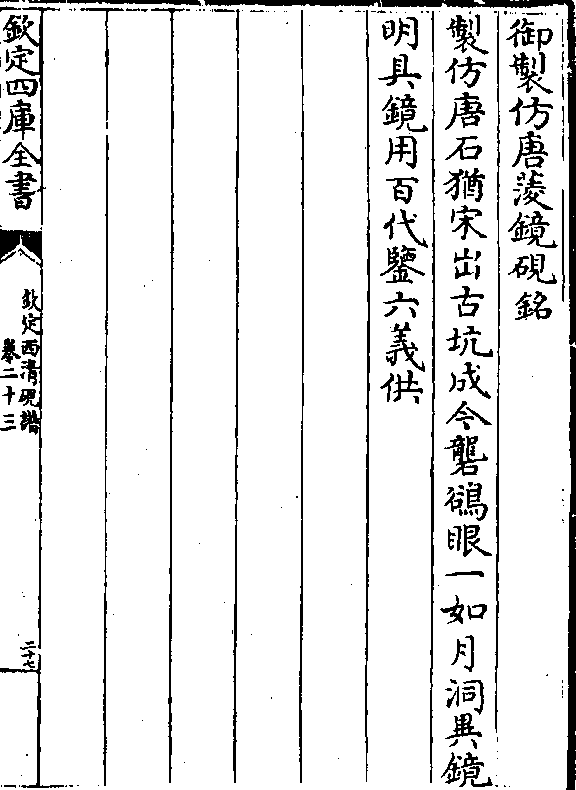 御製仿唐菱鏡硯銘
製仿唐石猶宋出古坑成今礱鵒眼一如月洞異鏡
明具鏡用百代鑒六義供
欽定四庫全書
欽定西清硯譜
卷二十三
二十七